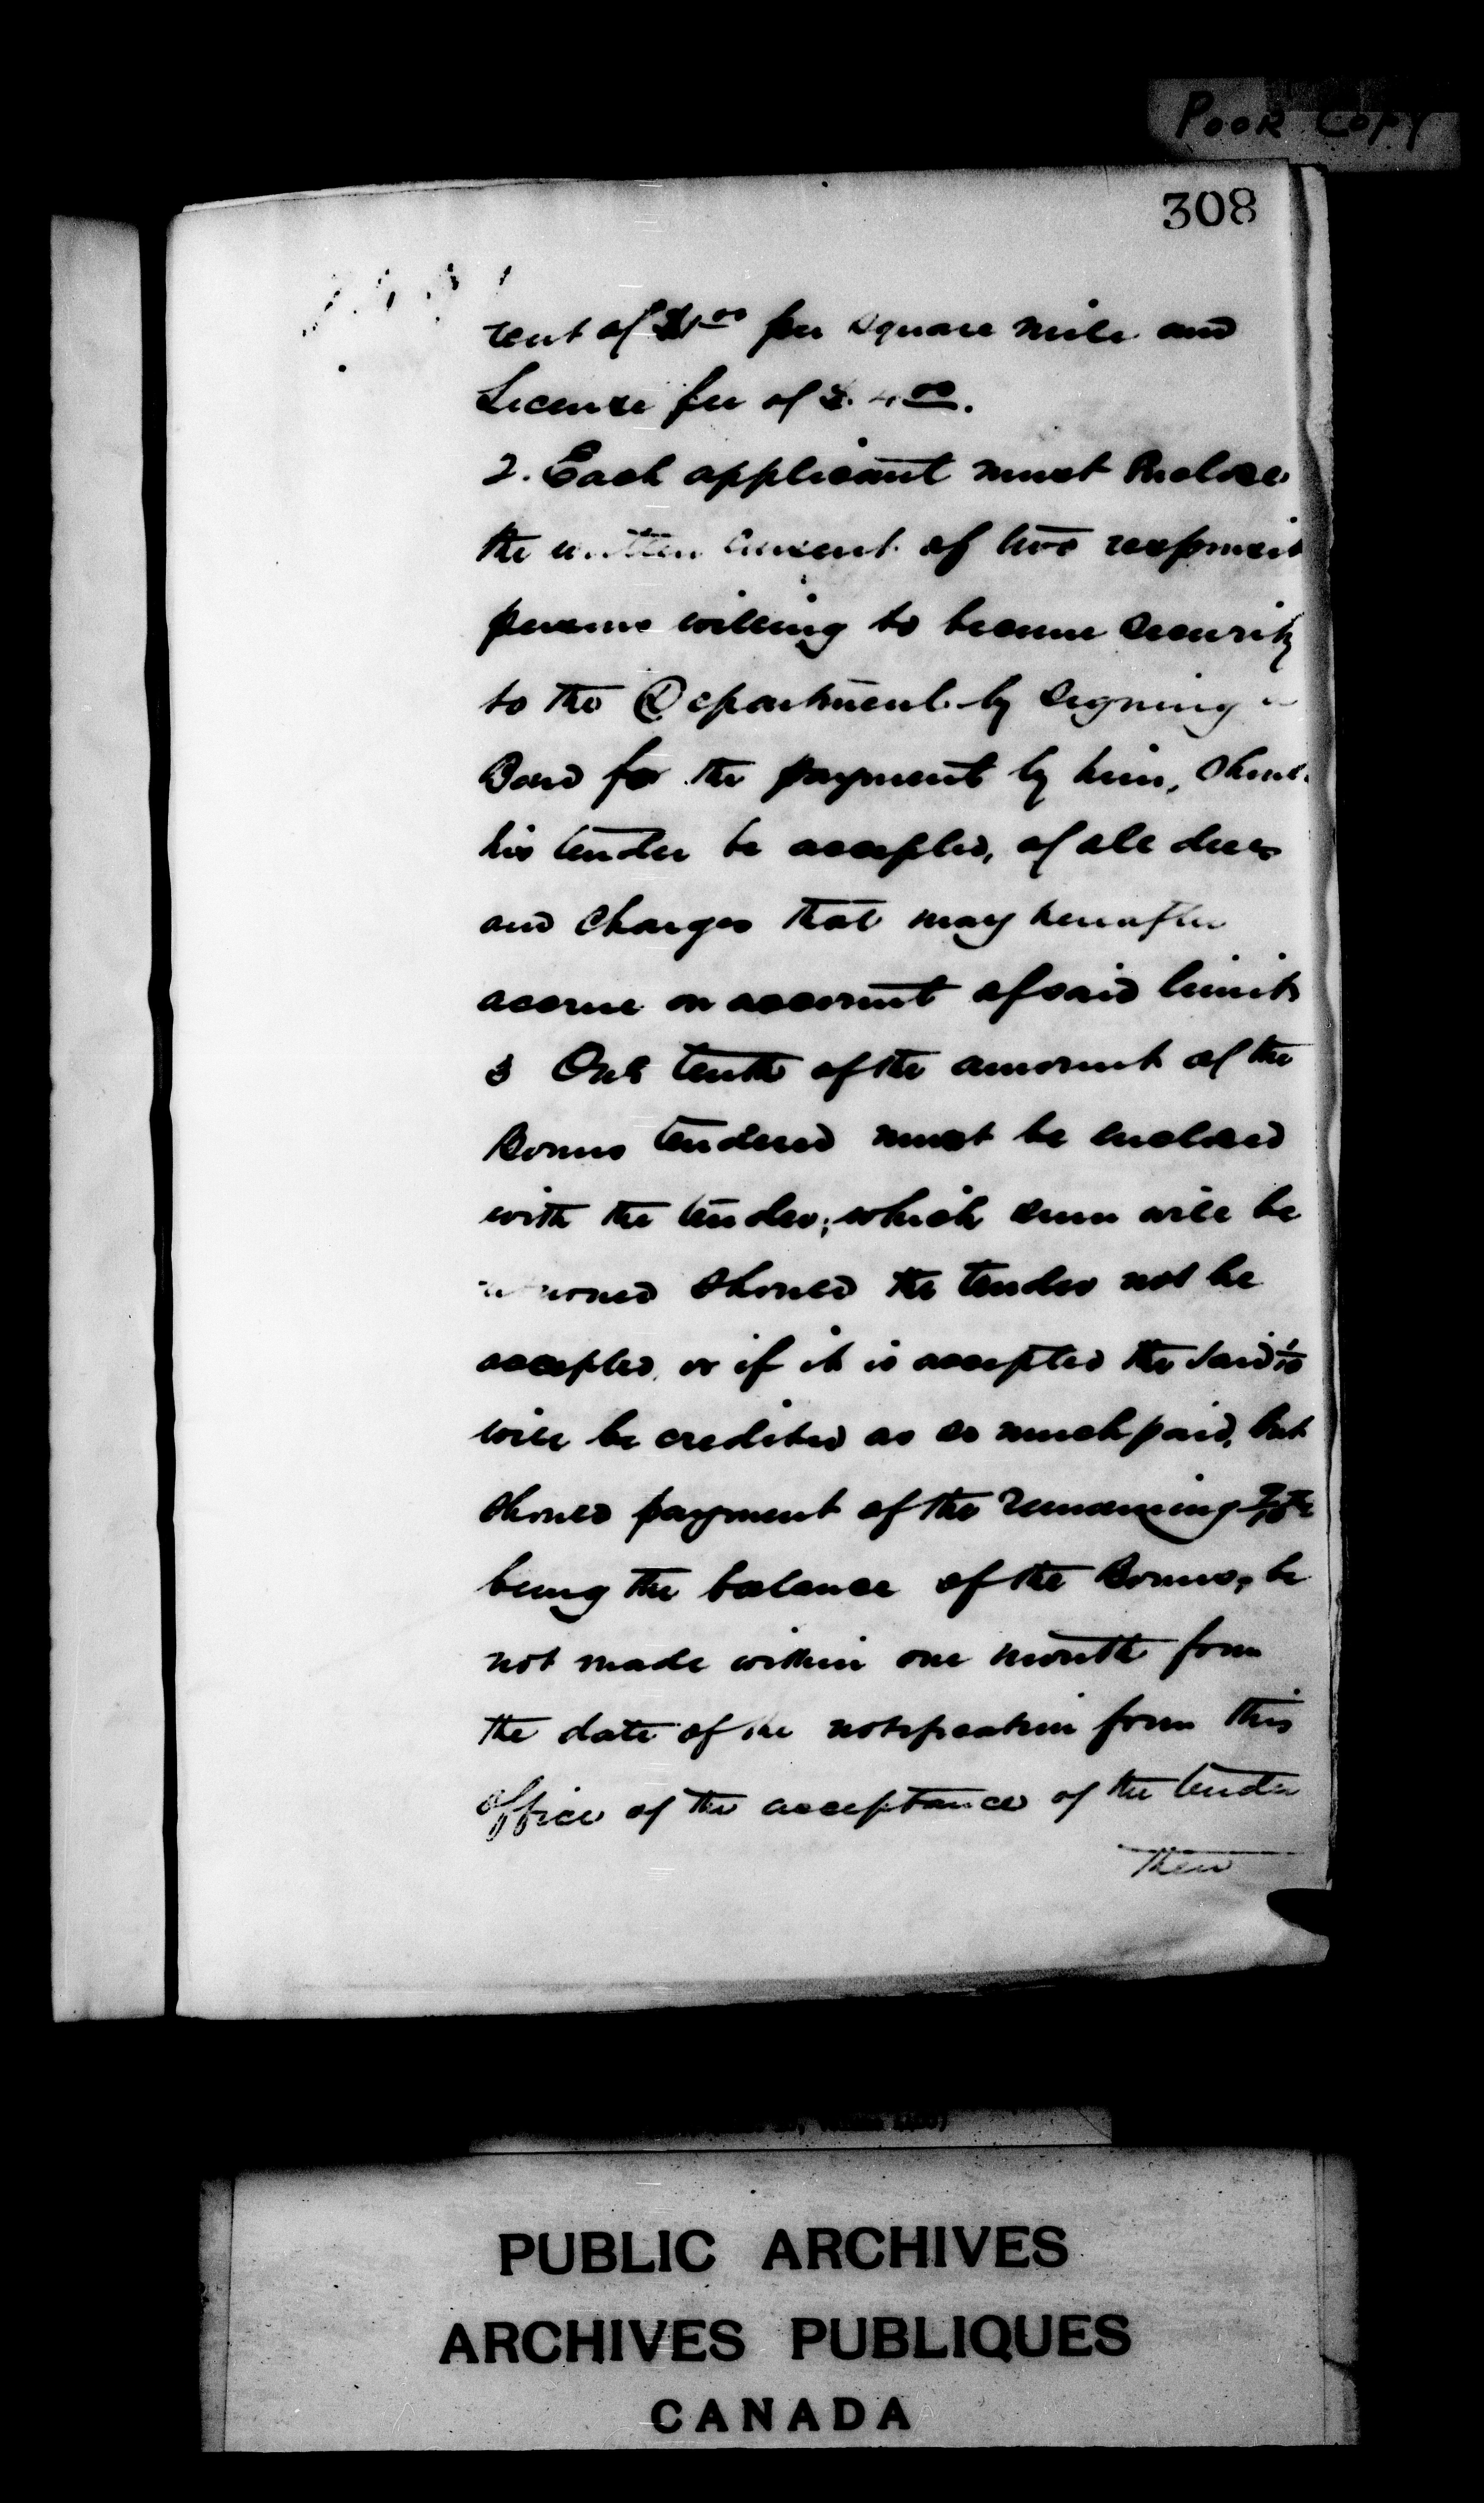 POOR COPY
308
rent of $1.00 per square mile and
License fee of $. 4.00.
2. Each applicant must enclose
the written consent of two responsib
persons willing to become security
to the Department by signing a
Bond for the payment by him, shoul
his tender be accepted, of all dues
and charges that may hereafter
accrue on account of said limits
3 One tenth of the amount of the
Bonus tendered must be enclosed
with the tender; which sum will be
returned should the tender not be
accepted, or if it is accepted the said 1/10
will be credited as so much paid, but
should payment of the remaining 9/10ths
being the balance of the Bonus, be
not made within one month from
the date of the notification from this
office of the acceptance of the tender
then
PUBLIC ARCHIVES
ARCHIVES PUBLIQUES
CANADA